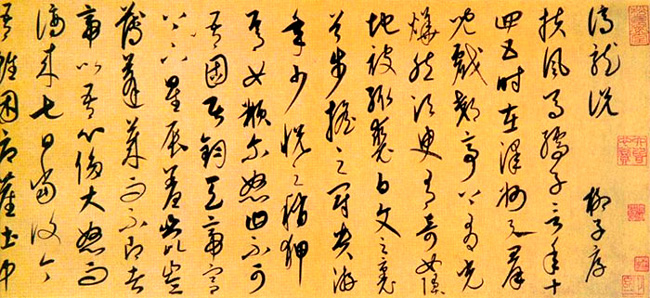 謫龍說 柳子厚
扶風馬孺子言年十
四五時在澤州與群
兒戲郊亭上有光
燁然須臾有奇女墜
地被緅裘白文之裏
首步搖之冠貴游
年少悅之稍狎
焉女頩尔怒曰不可
吾固居鈞天帝宮
星辰羞
薄蓬萊而不即者
帝以吾心侈大怒而
謫來七日當復今
吾雖困辱塵土中